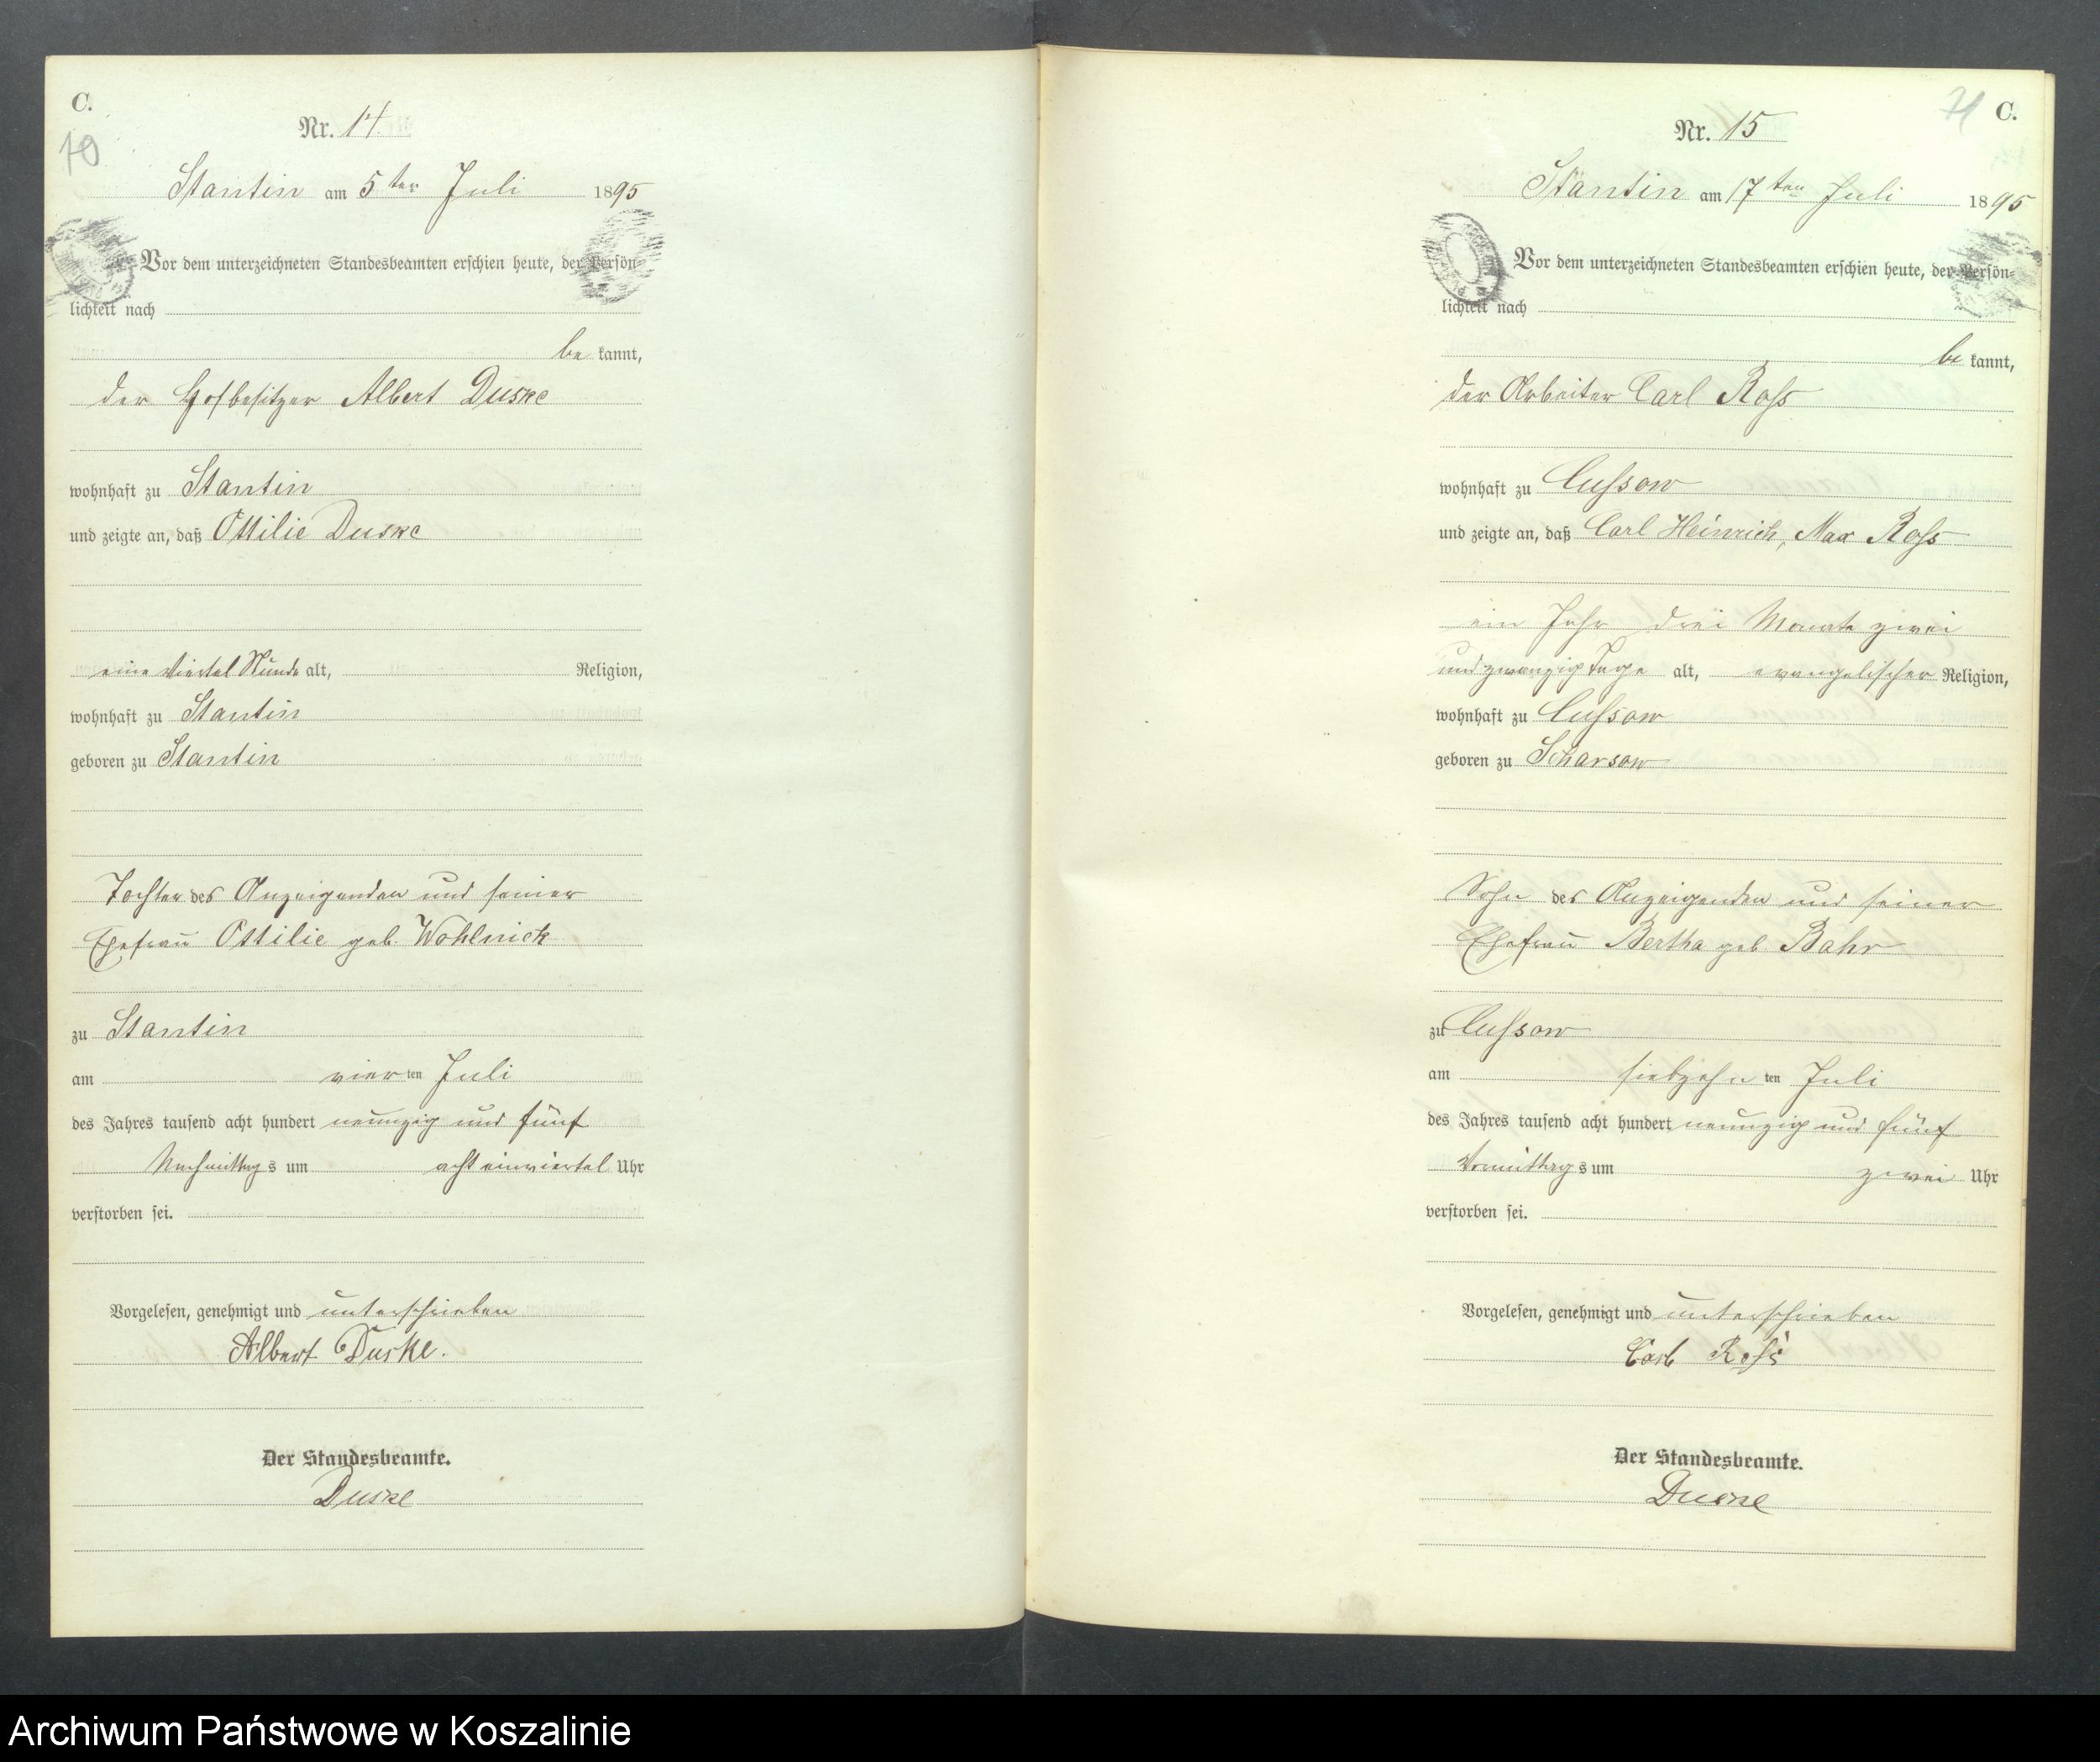 C.
70
Nr. 14.
Stantin am 5ten Juli 1895
Vor dem unterzeichneten Standesbeamten erschien heute, der Persön-
lichkeit nach
be kannt,
der Hofbesitzer Albert Duske
wohnhaft zu Stantin
und zeigte an, daß Ottilie Duske
eine Viertel Stunde alt, Religion,
wohnhaft zu Stantin
geboren zu Stantin
Tochter des Anzeigenden und seiner
Ehefrau Ottilie geb. Wohlnick
zu Stantin
am vier ten Juli
des Jahres tausend acht hundert neunzig und fünf
Nachmittags um acht einviertel Uhr
verstorben sei.
Vorgelesen, genehmigt und unterschrieben
Albert Duske.
Der Standesbeamte.
Duske
71 C.
Nr. 15
Stantin am 17ten Juli 1895
Vor dem unterzeichneten Standesbeamten erschien heute, der Persön-
lichkeit nach
be kannt,
der Arbeiter Carl Roß
wohnhaft zu Cussow
und zeigte an, daß Carl Heinrich, Max Roß
ein Jahr drei Monate zwei
und zwanzig Tage alt, evangelischer Religion,
wohnhaft zu Cussow
geboren zu Scharsow
Sohn des Anzeigenden und seiner
Ehefrau Bertha geb. Bahr
zu Cussow
am siebzehn ten Juli
des Jahres tausend acht hundert neunzig und fünf
Vormittags um zwei Uhr
verstorben sei.
Vorgelesen, genehmigt und unterschrieben
Carl Roß
Der Standesbeamte.
Duske
Archiwum Państwowe w Koszalinie